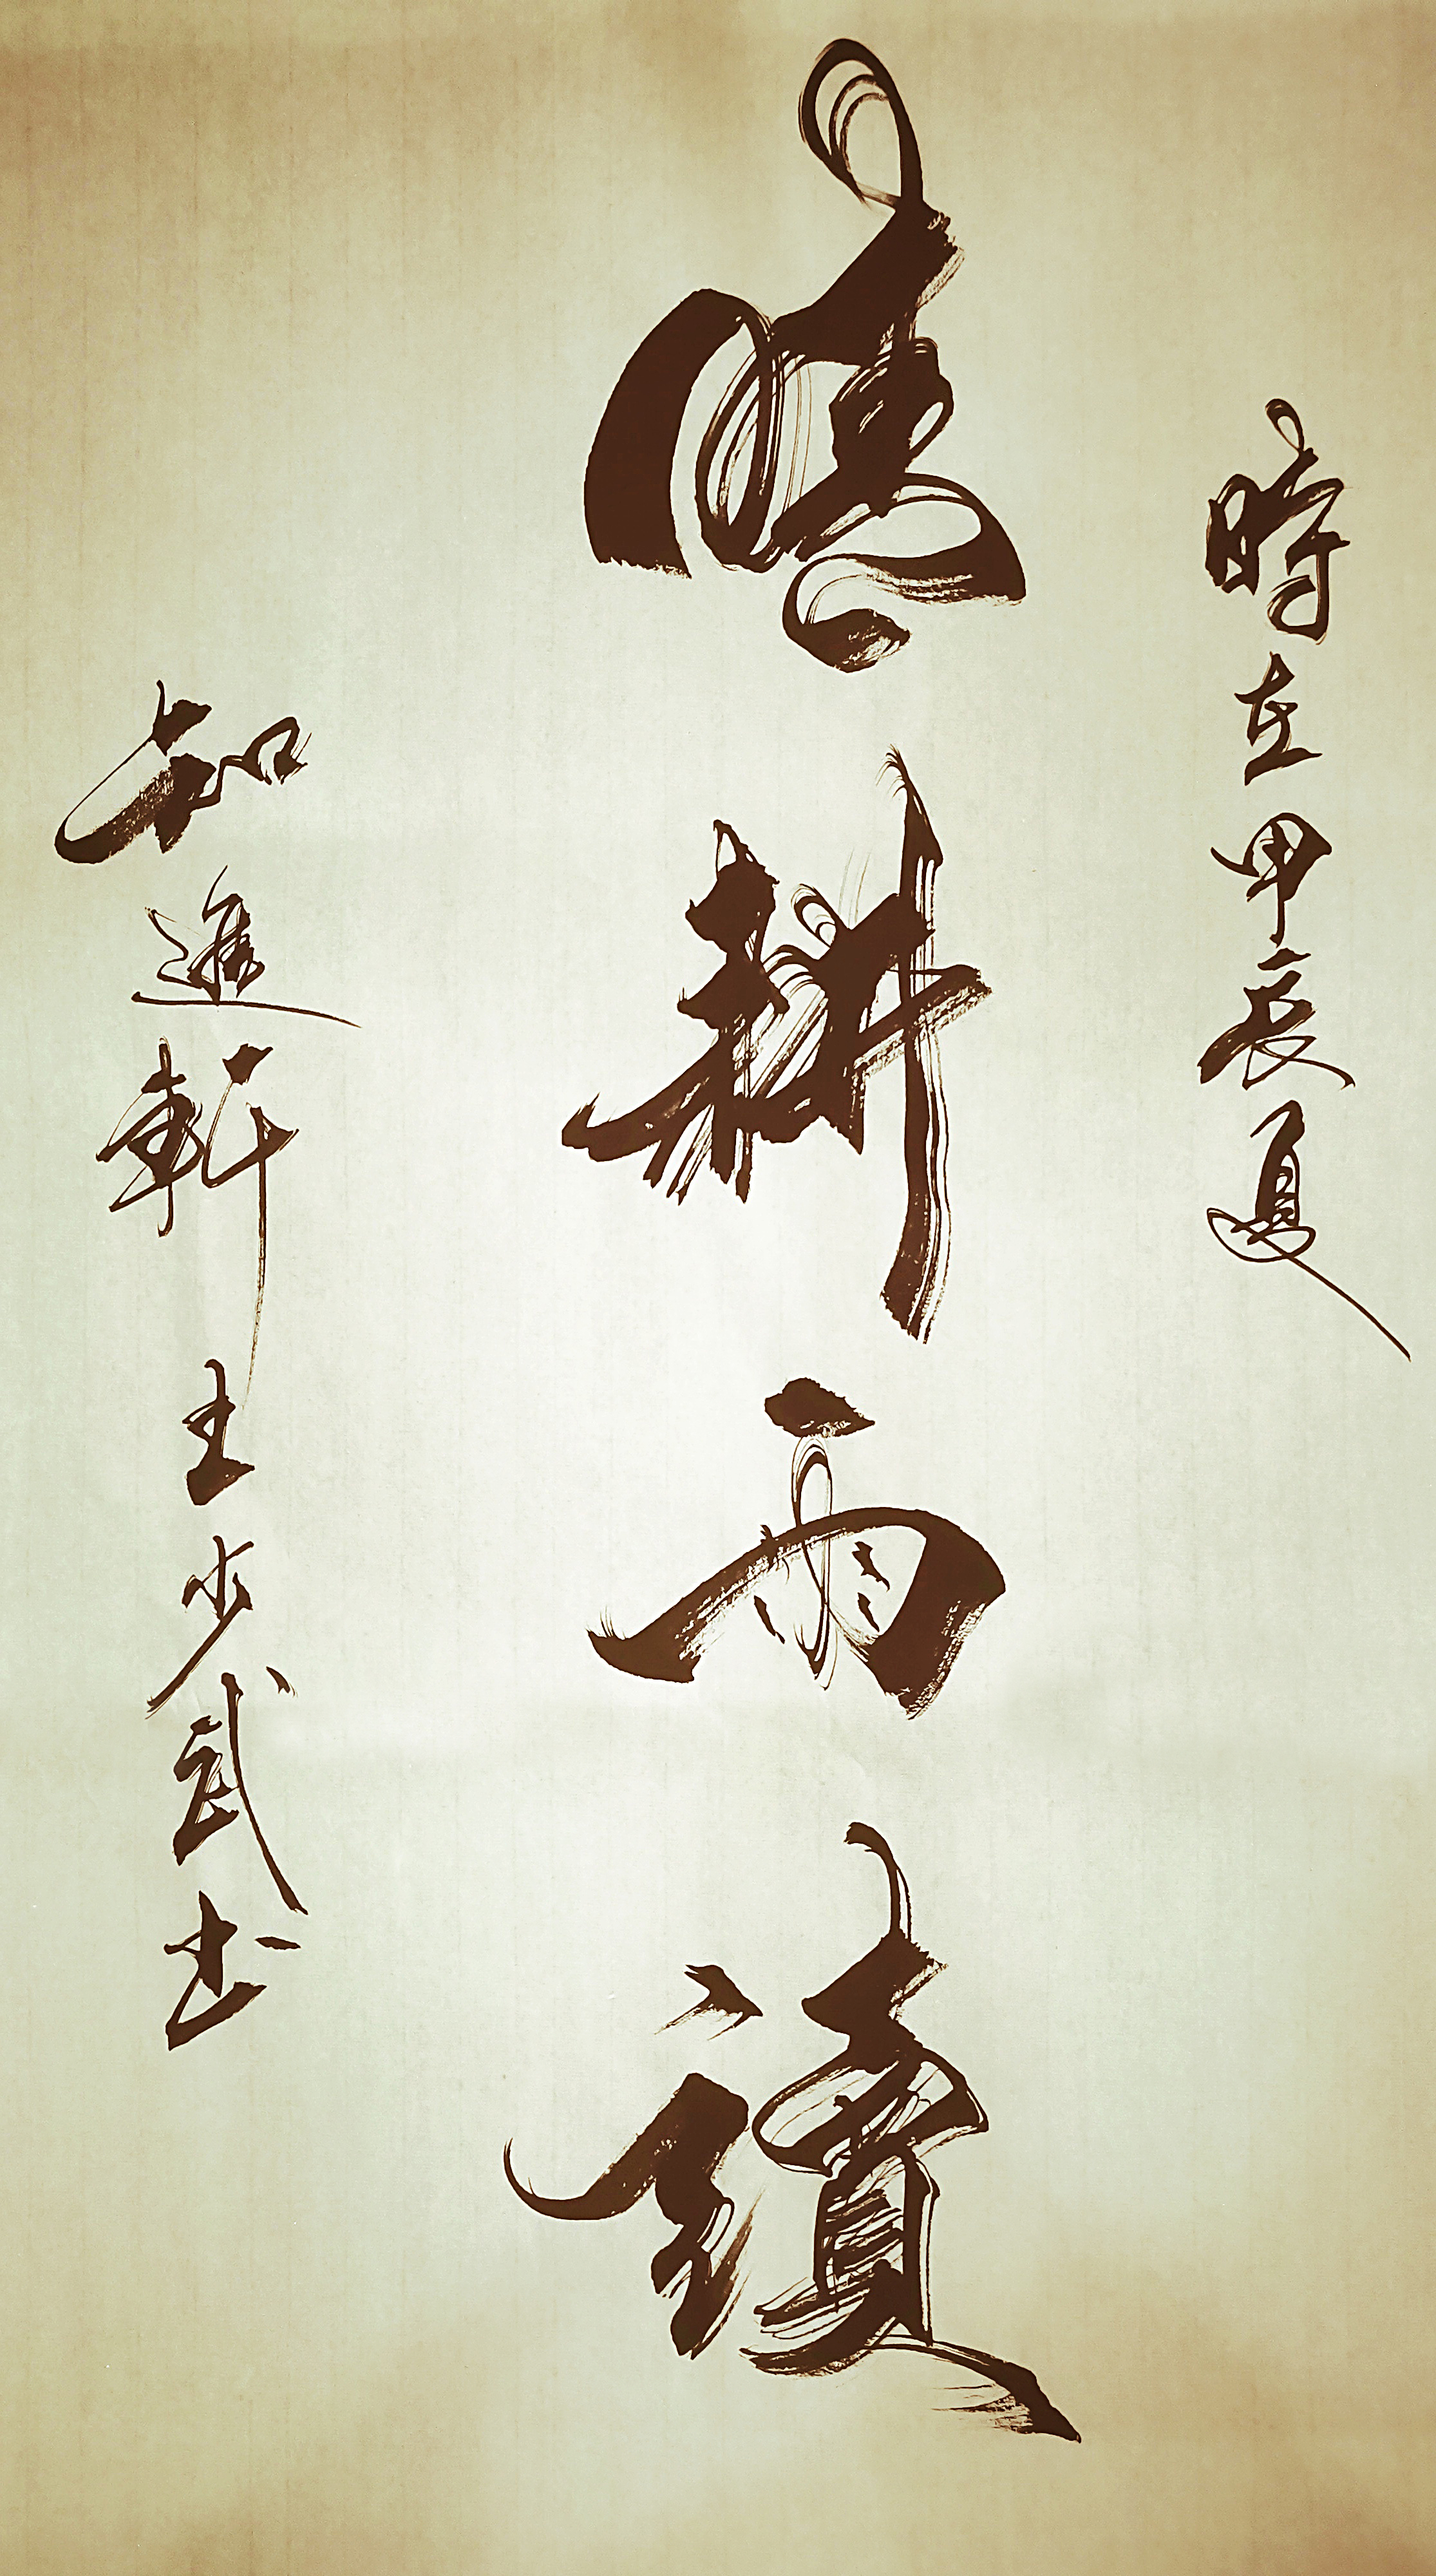 時在甲辰夏
晴耕雨讀
知進軒主少武书